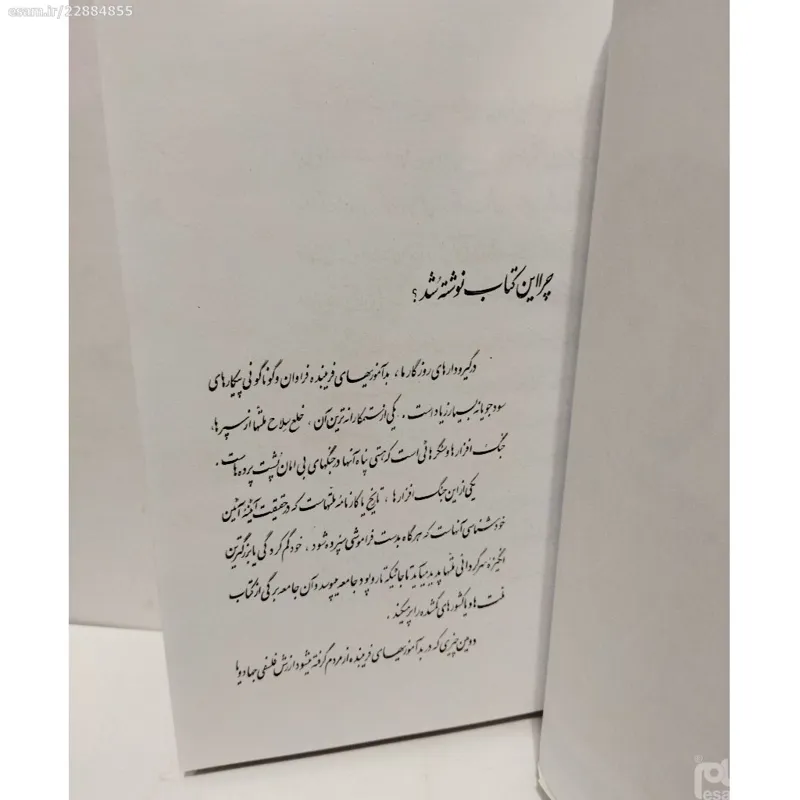 esam.ir/22884855
چرا این کتاب نوشته شد؟
در گیر و دارهای روزگار ما، بدآموزیهای فریبنده فراوان و گوناگونی پیکارهای
سودجویانه بسیار زیاد است. یکی از ستمکارانه ترین آن، خلع سلاح ملتها از سپرها،
جنگ افزارها و سنگرهائی است که هستی پناه آنها در جنگهای بی امان پشت پرده هاست.
یکی از این جنگ افزارها، تاریخ یا کارنامه ملتهاست که در حقیقت آئینۀ آئین
خودشناسی آنهاست که هرگاه بدست فراموشی سپرده شود، خود گم کردگی یا بزرگترین
انگیزه سرگردانی ملتها پدید میآید تا جائیکه تار و پود جامعه میپوسد و آن جامعه برگی از کتاب
ملت ها و یا کشورهای گمشده را پر میکند.
دومین چیزی که در بدآموزیهای فریبنده از مردم گرفته میشود ارزش فلسفی جهادیوها
esa